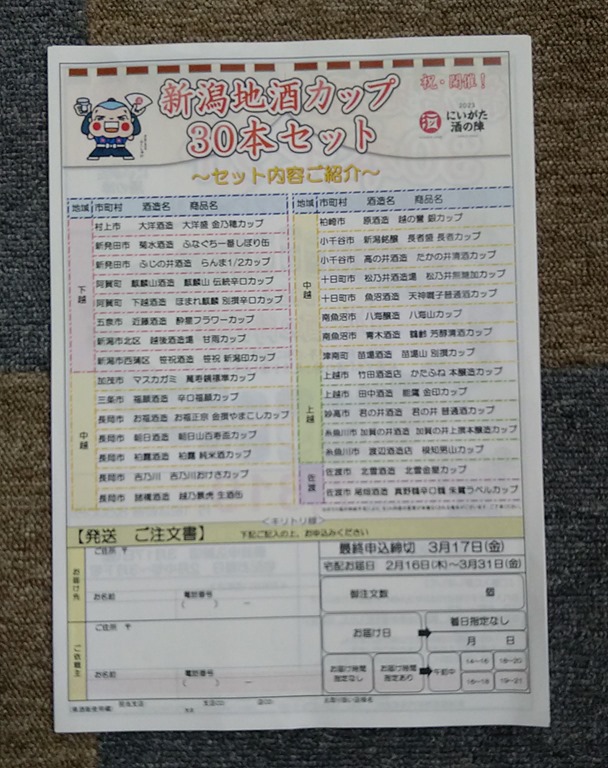 祝・開催！
新潟地酒カップ
30本セット
2023
にいがた
酒の陣
～セット内容ご紹介～
地域 市町村 酒造名 商品名
下越
村上市 大洋酒造 大洋盛 金乃穂カップ
新発田市 菊水酒造 ふなぐち一番しぼり缶
新発田市 ふじの井酒造 らんま1/2カップ
阿賀町 麒麟山酒造 麒麟山 伝統辛口カップ
阿賀町 下越酒造 ほまれ麒麟 別撰辛口カップ
五泉市 近藤酒造 酔星フラワーカップ
新潟市北区 越後酒造場 甘雨カップ
新潟市西蒲区 笹祝酒造 笹祝 新潟印カップ
中越
加茂市 マスカガミ 萬寿鏡福準カップ
三条市 福顔酒造 辛口福顔カップ
長岡市 お福酒造 お福正宗 金撰やまこしカップ
長岡市 朝日酒造 朝日山百寿盃カップ
長岡市 柏露酒造 柏露 純米酒カップ
長岡市 吉乃川 吉乃川おけさカップ
長岡市 諸橋酒造 越乃景虎 生酒缶
地域 市町村 酒造名 商品名
中越
柏崎市 原酒造 越の誉 銀カップ
小千谷市 新潟銘醸 長者盛 長者カップ
小千谷市 高の井酒造 たかの井清酒カップ
十日町市 松乃井酒造場 松乃井無糖加カップ
十日町市 魚沼酒造 天神囃子普通酒カップ
南魚沼市 八海醸造 八海山カップ
南魚沼市 青木酒造 鶴齢 芳醇清酒カップ
津南町 苗場酒造 苗場山 別撰カップ
上越
上越市 竹田酒造店 かたふね 本醸造カップ
上越市 田中酒造 能鷹 金印カップ
妙高市 君の井酒造 君の井 普通酒カップ
糸魚川市 加賀の井酒造 加賀の井上撰本醸造カップ
糸魚川市 渡辺酒造店 根知男山カップ
佐渡
佐渡市 北雪酒造 北雪金星カップ
佐渡市 尾畑酒造 真野鶴辛口鶴 朱鷺ラベルカップ
＜キリトリ線＞
【発送 ご注文書】 下記ご記入の上、お申込みください
お届け先
ご住所 〒
お名前 電話番号
( ) －
ご依頼主
ご住所 〒
お名前 電話番号
( ) －
最終申込締切 3月17日(金)
宅配お届日 2月16日(木)～3月31日(金)
御注文数 個
お届け日 ➡ 着日指定なし
月 日
お届け時間 指定なし
お届け時間 指定あり ➡ 午前中
14～16 18～20
16～18 19～21